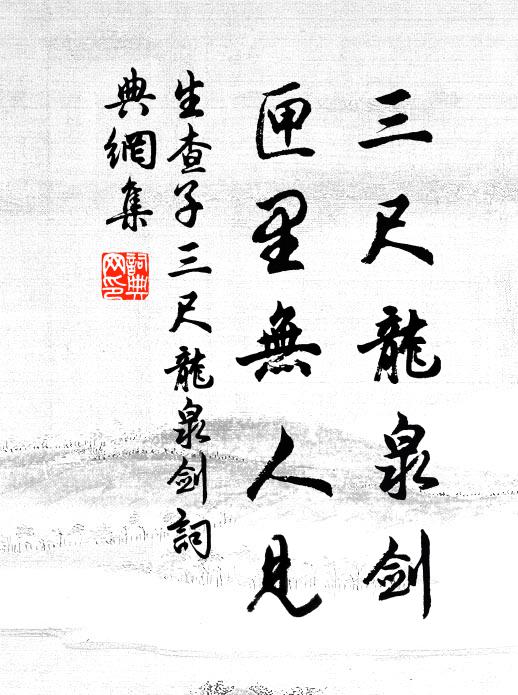 三尺龍泉劍
匣里無人見
生查子三尺龍泉劍詞
典網集
詞典網印